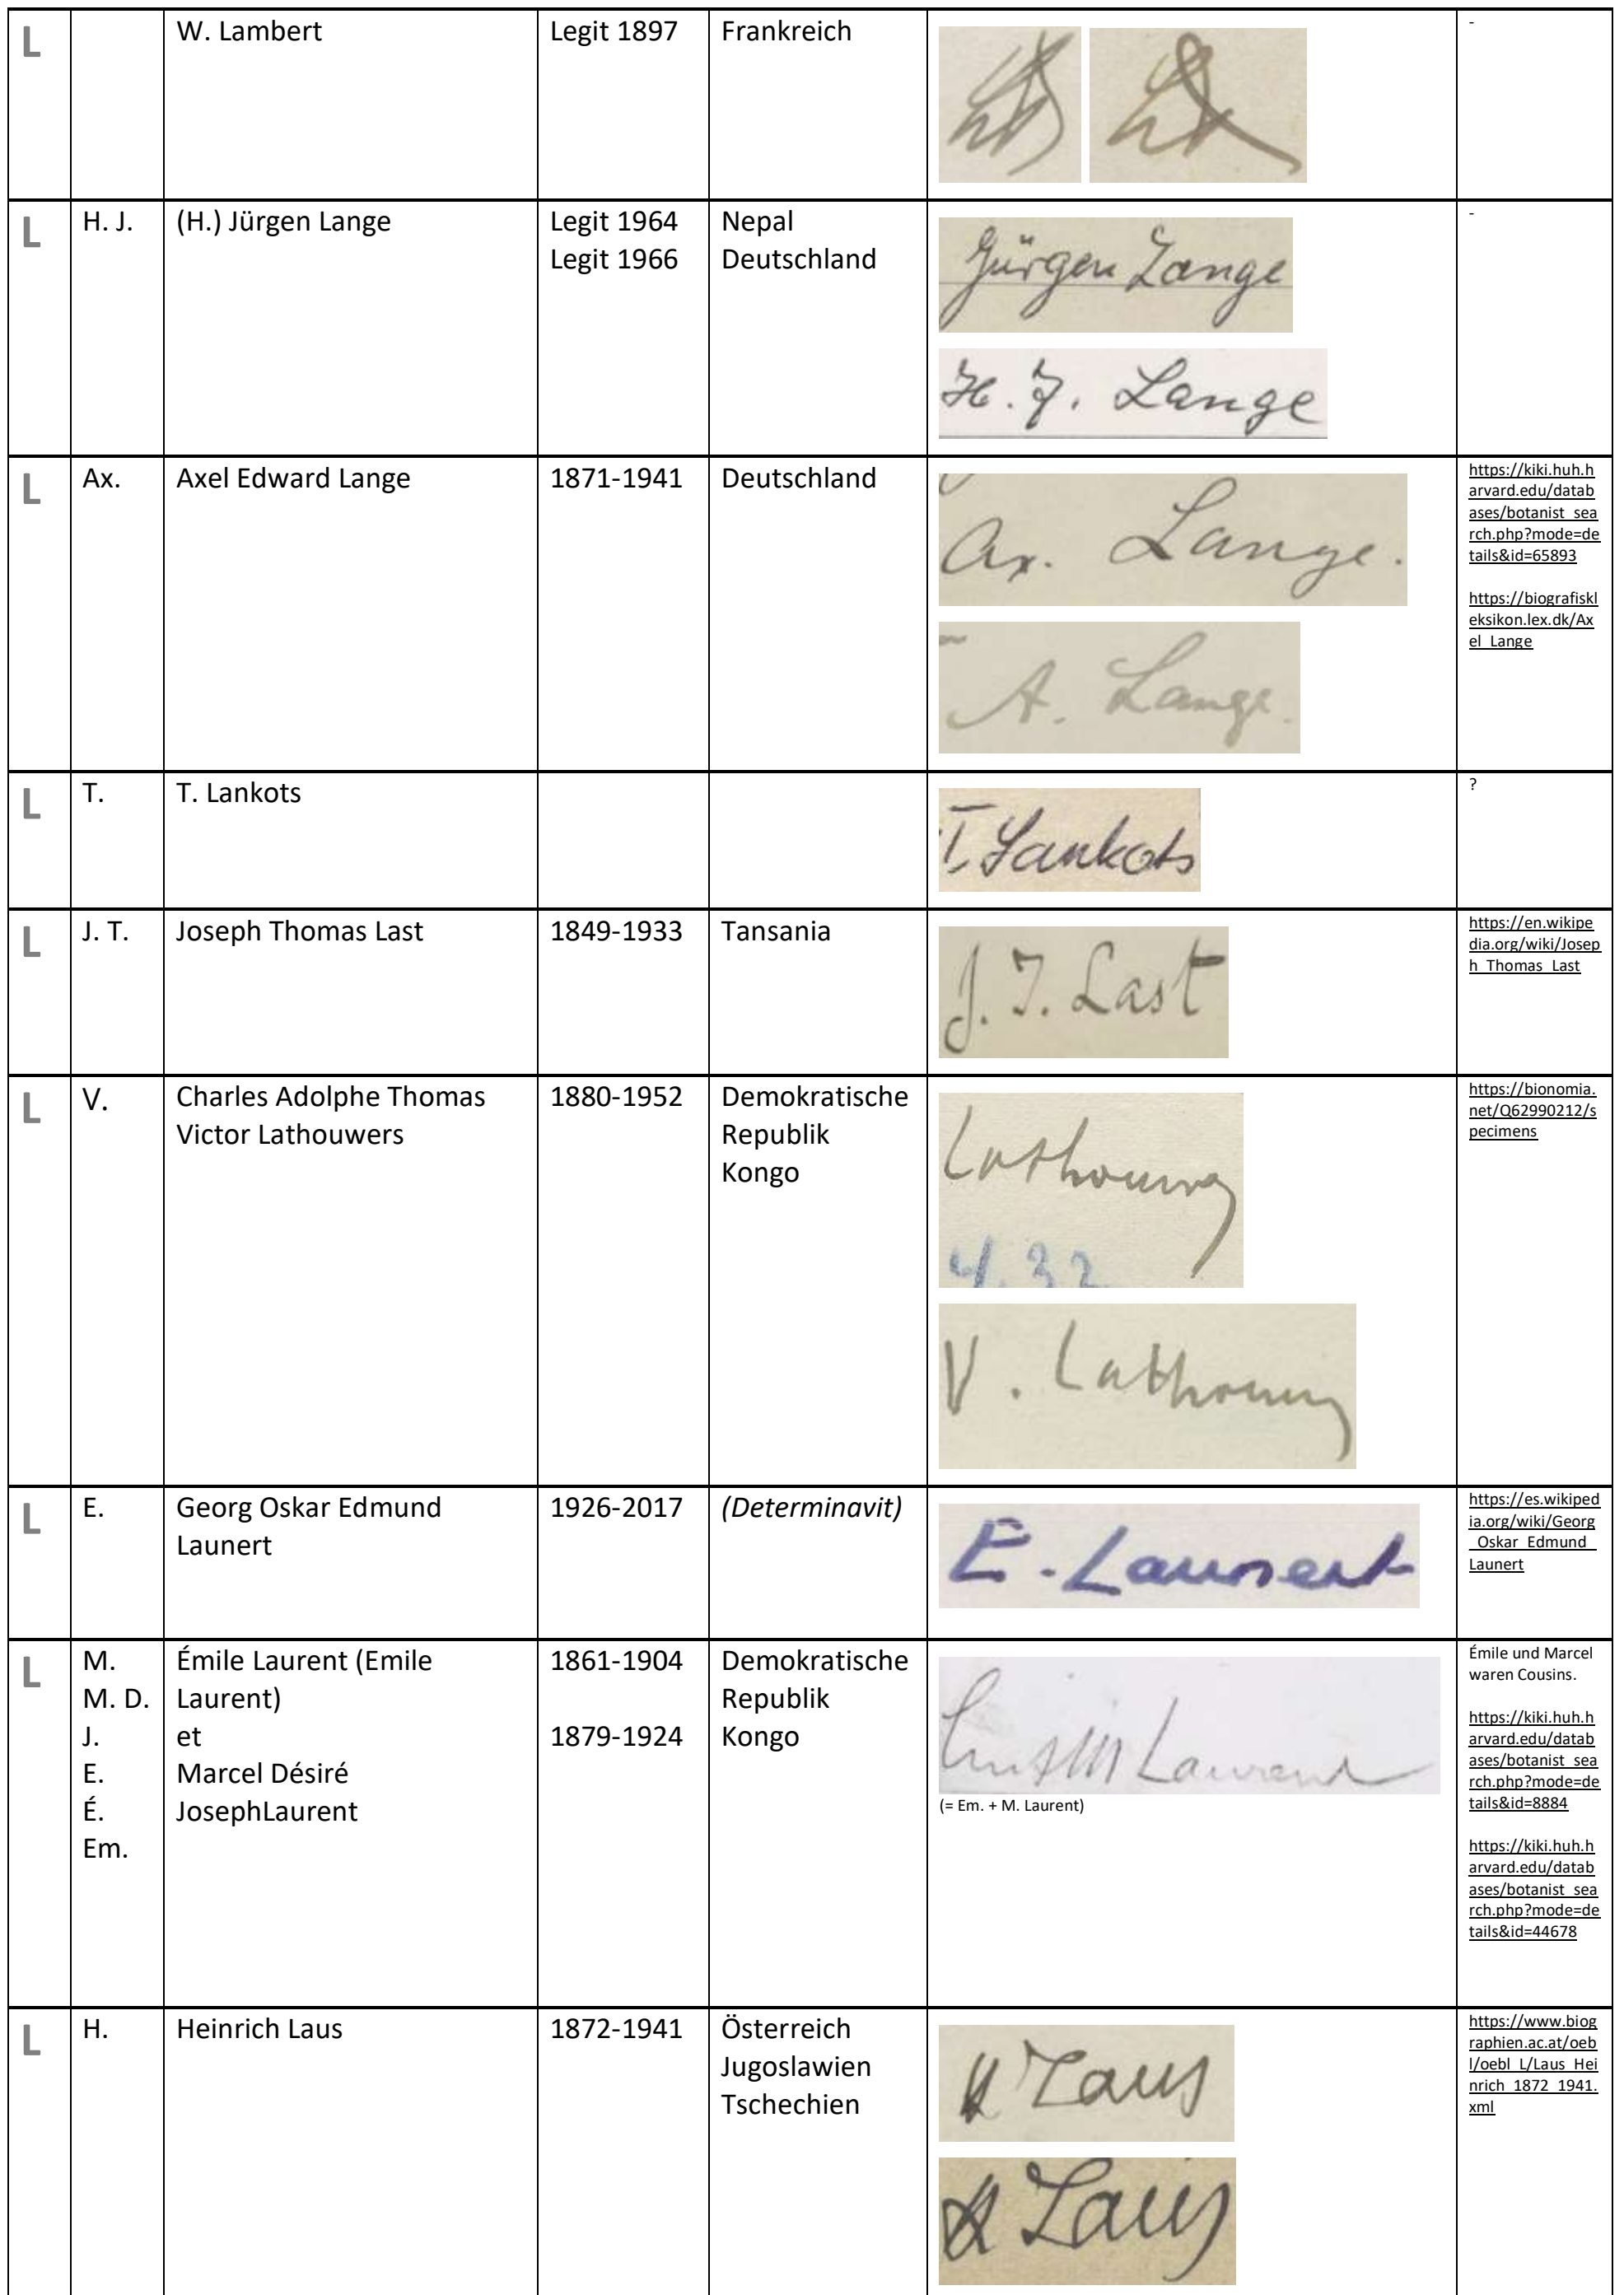 L W. Lambert Legit 1897 Frankreich -
L H. J. (H.) Jürgen Lange Legit 1964 Nepal -
Legit 1966 Deutschland
Jürgen Lange
H. J. Lange
L Ax. Axel Edward Lange 1871-1941 Deutschland
Ax. Lange.
A. Lange.
https://kiki.huh.h
arvard.edu/datab
ases/botanist_sea
rch.php?mode=de
tails&id=65893
https://biografiskl
eksikon.lex.dk/Ax
el_Lange
L T. T. Lankots ?
T. Lankots
L J. T. Joseph Thomas Last 1849-1933 Tansania
J. T. Last
https://en.wikipe
dia.org/wiki/Josep
h_Thomas_Last
L V. Charles Adolphe Thomas 1880-1952 Demokratische
Victor Lathouwers Republik
Kongo
Lathouwers
4. 32
V. Lathouwers
https://bionomia.
net/Q62990212/s
pecimens
L E. Georg Oskar Edmund 1926-2017 (Determinavit)
Launert
E. Launert
https://es.wikiped
ia.org/wiki/Georg
_Oskar_Edmund_
Launert
L M. Émile Laurent (Emile 1861-1904 Demokratische
M. D. Laurent) Republik
J. et 1879-1924 Kongo
E. Marcel Désiré
É. JosephLaurent
Em.
Em + M Laurent
(= Em. + M. Laurent)
Émile und Marcel
waren Cousins.
https://kiki.huh.h
arvard.edu/datab
ases/botanist_sea
rch.php?mode=de
tails&id=8884
https://kiki.huh.h
arvard.edu/datab
ases/botanist_sea
rch.php?mode=de
tails&id=44678
L H. Heinrich Laus 1872-1941 Österreich
Jugoslawien
Tschechien
H Laus
H Laus
https://www.biog
raphien.ac.at/oeb
l/oebl_L/Laus_Hei
nrich_1872_1941.
xml